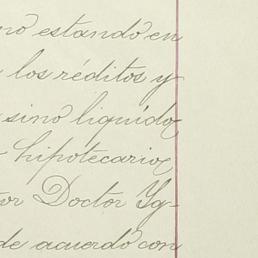 no estando en
los réditos y
sino liquido,
hipotecario,
or Doctor Yg-
de acuerdo con